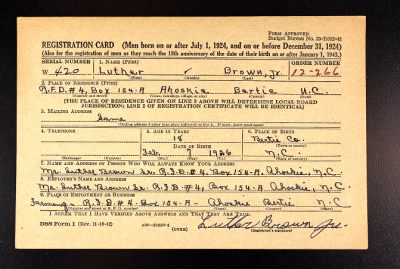 FORM APPROVED
Budget Bureau No. 33-R
REGISTRATION CARD (Men born on or after July 1, 1924, and on or before December 31, 1924)
(Also for the registration of men as they reach the 18th anniversary of the date of their birth on or after January 1, 1943.)
SERIAL NUMBER 1. NAME (Print) ORDER NUMBER
W 420 Luther Brown, Jr. 12-266
(First) (Middle) (Last)
2. PLACE OF RESIDENCE (Print)
R.F.D. #4, Box 154-A Ahoskie Bertie N.C.
(County) (State)
[THE PLACE OF RESIDENCE GIVEN ON LINE 2 ABOVE WILL DETERMINE LOCAL BOARD
JURISDICTION; LINE 2 OF REGISTRATION CERTIFICATE WILL BE IDENTICAL]
3. MAILING ADDRESS
Same
4. TELEPHONE 5. AGE IN YEARS 6. PLACE OF BIRTH
18 Bertie Co.
DATE OF BIRTH
Feb 7 1926 N.C.
(Exchange) (Number) (Mo.) (Day) (Yr.)
7. NAME AND ADDRESS OF PERSON WHO WILL ALWAYS KNOW YOUR ADDRESS
Mr. Luther Brown Sr. R.F.D. #4, Box 154-A Ahoskie, N.C.
8. EMPLOYER'S NAME AND ADDRESS
Mr. Luther Brown Sr. R.F.D. #4, Box 154-A, Ahoskie, N.C.
9. PLACE OF EMPLOYMENT OR BUSINESS
Farming - R.F.D. #4 - Box 154-A - Ahoskie Bertie N.C.
I AFFIRM THAT I HAVE VERIFIED ABOVE ANSWERS AND THAT THEY ARE TRUE.
DSS Form 1 (Rev. 11-16-42) (OVER) Luther Brown Jr.
(Registrant's signature)